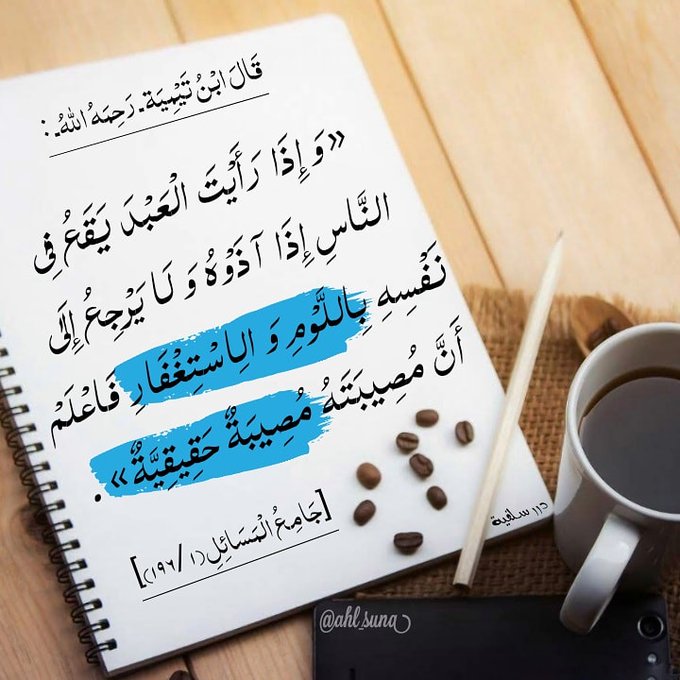 قَالَ ابْنُ تَيْمِيَة ـ رَحِمَهُ اللهُ ـ :
«وَإِذَا رَأَيْتَ الْعَبْدَ يَقَعُ فِي
النَّاسِ إِذَا آذَوْهُ وَلَا يَرْجِعُ إِلَى
نَفْسِهِ بِاللَّوْمِ وَالِاسْتِغْفَارِ فَاعْلَمْ
أَنَّ مُصِيبَتَهُ مُصِيبَةٌ حَقِيقِيَّةٌ» .
[جَامِعُ الْمَسَائِلِ (١/١٩٦)]
درر سلفية
@ahl_suna